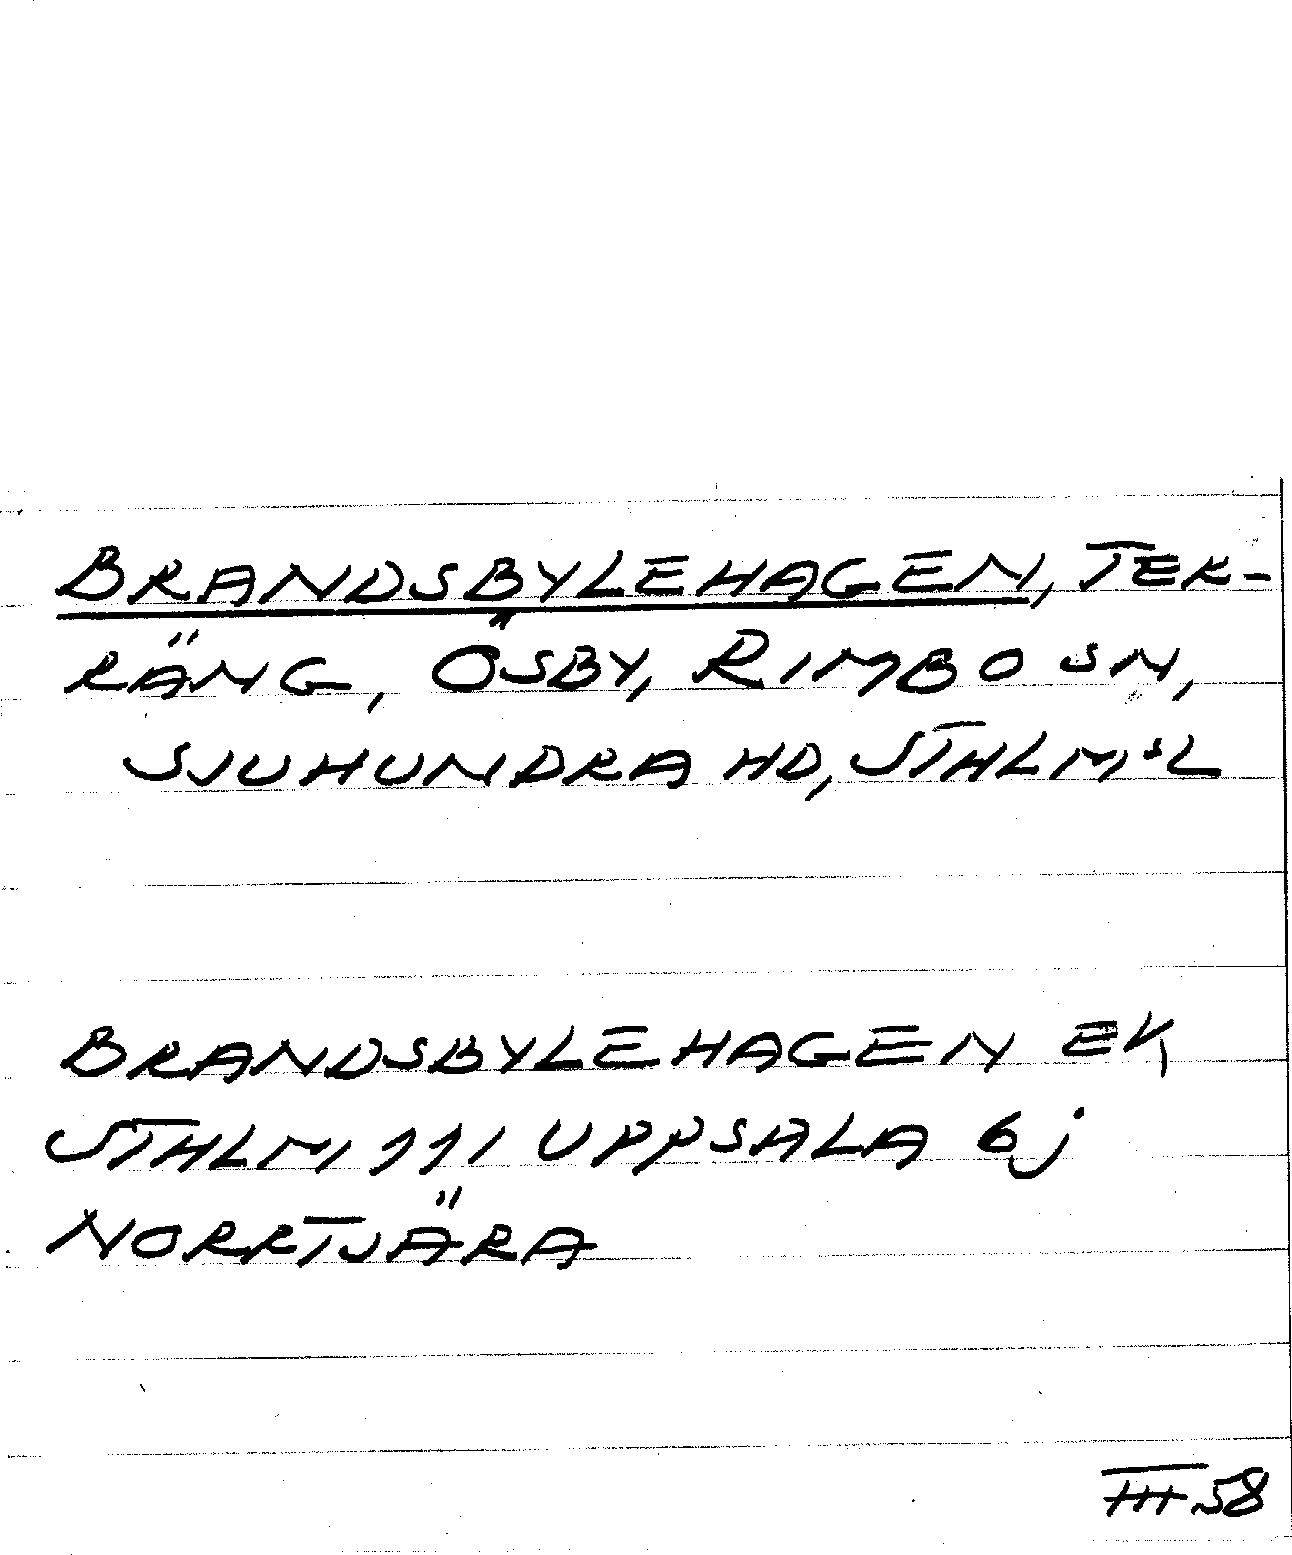 BRANDSBYLEHAGEN, TER-
RÄNG, ÖSBY, RIMBO SN,
SJUHUNDRA HD, STHLM SL
BRANDSBYLEHAGEN EK
STHLM 111 UPPSALA 6j
NORRTJÄRA
III 58